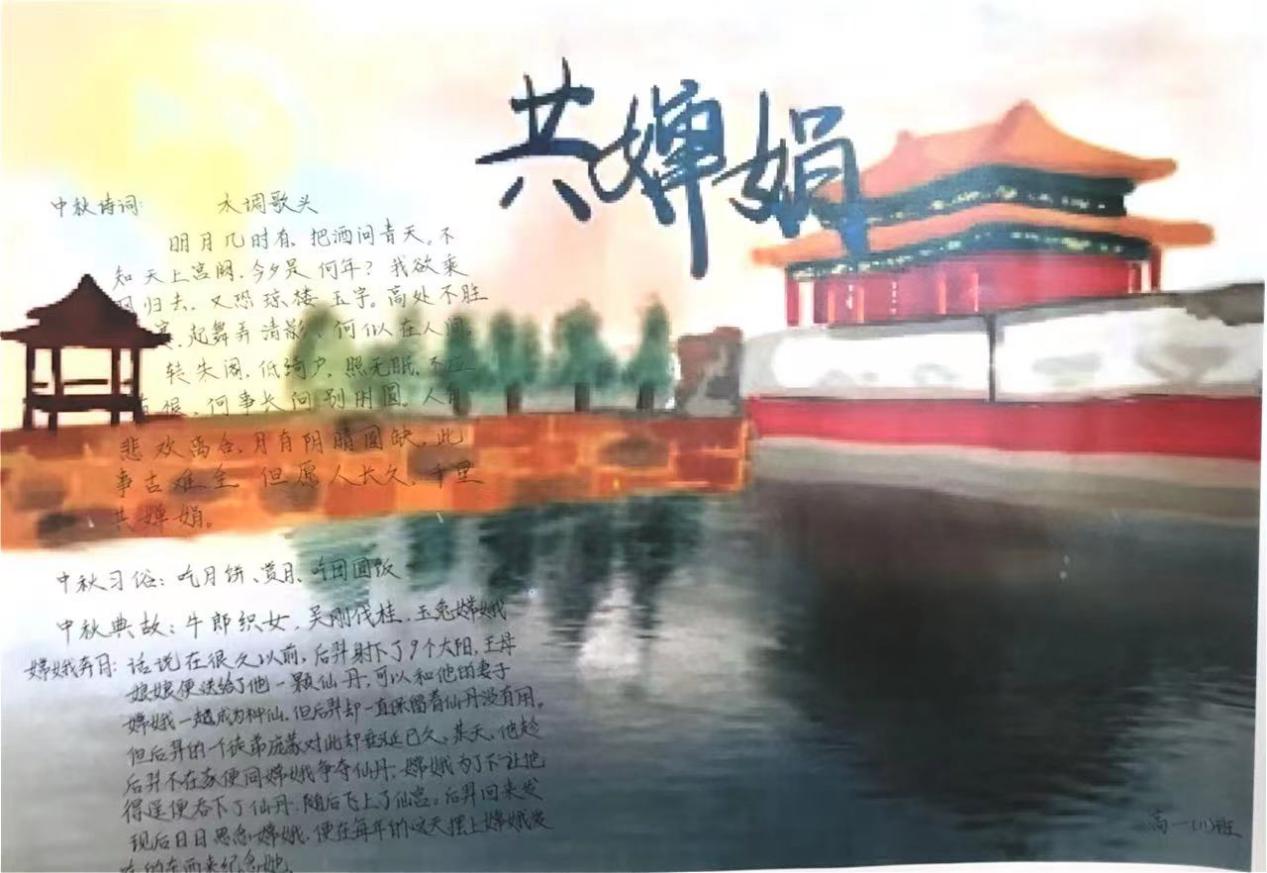 共婵娟
中秋诗词: 水调歌头
明月几时有,把酒问青天。不
知天上宫阙,今夕是何年?我欲乘
归去,又恐琼楼玉宇。高处不胜
寒,起舞弄清影,何似在人间。
转朱阁,低绮户,照无眠,不应
有恨,何事长向别时圆。人有
悲欢离合,月有阴晴圆缺,此
事古难全,但愿人长久,千里
共婵娟。
中秋习俗:吃月饼、赏月、吃团圆饭
中秋典故:牛郎织女,吴刚伐桂,玉兔嫦娥
嫦娥奔月:话说在很久以前,后羿射下了9个太阳,王母
娘娘便送给了他一颗仙丹,可以和他的妻子
嫦娥一起成为神仙,但后羿却一直保留着仙丹没有用。
但后羿的一个徒弟庞蒙对此却垂涎已久,某天,他趁
后羿不在家便同嫦娥争夺仙丹,嫦娥为了不让他
得逞便吞下了仙丹,随后飞上了仙宫。后羿回来发
现后日日思念嫦娥,便在每年的这天摆上嫦娥爱
的东西来纪念她。
高一(1)班